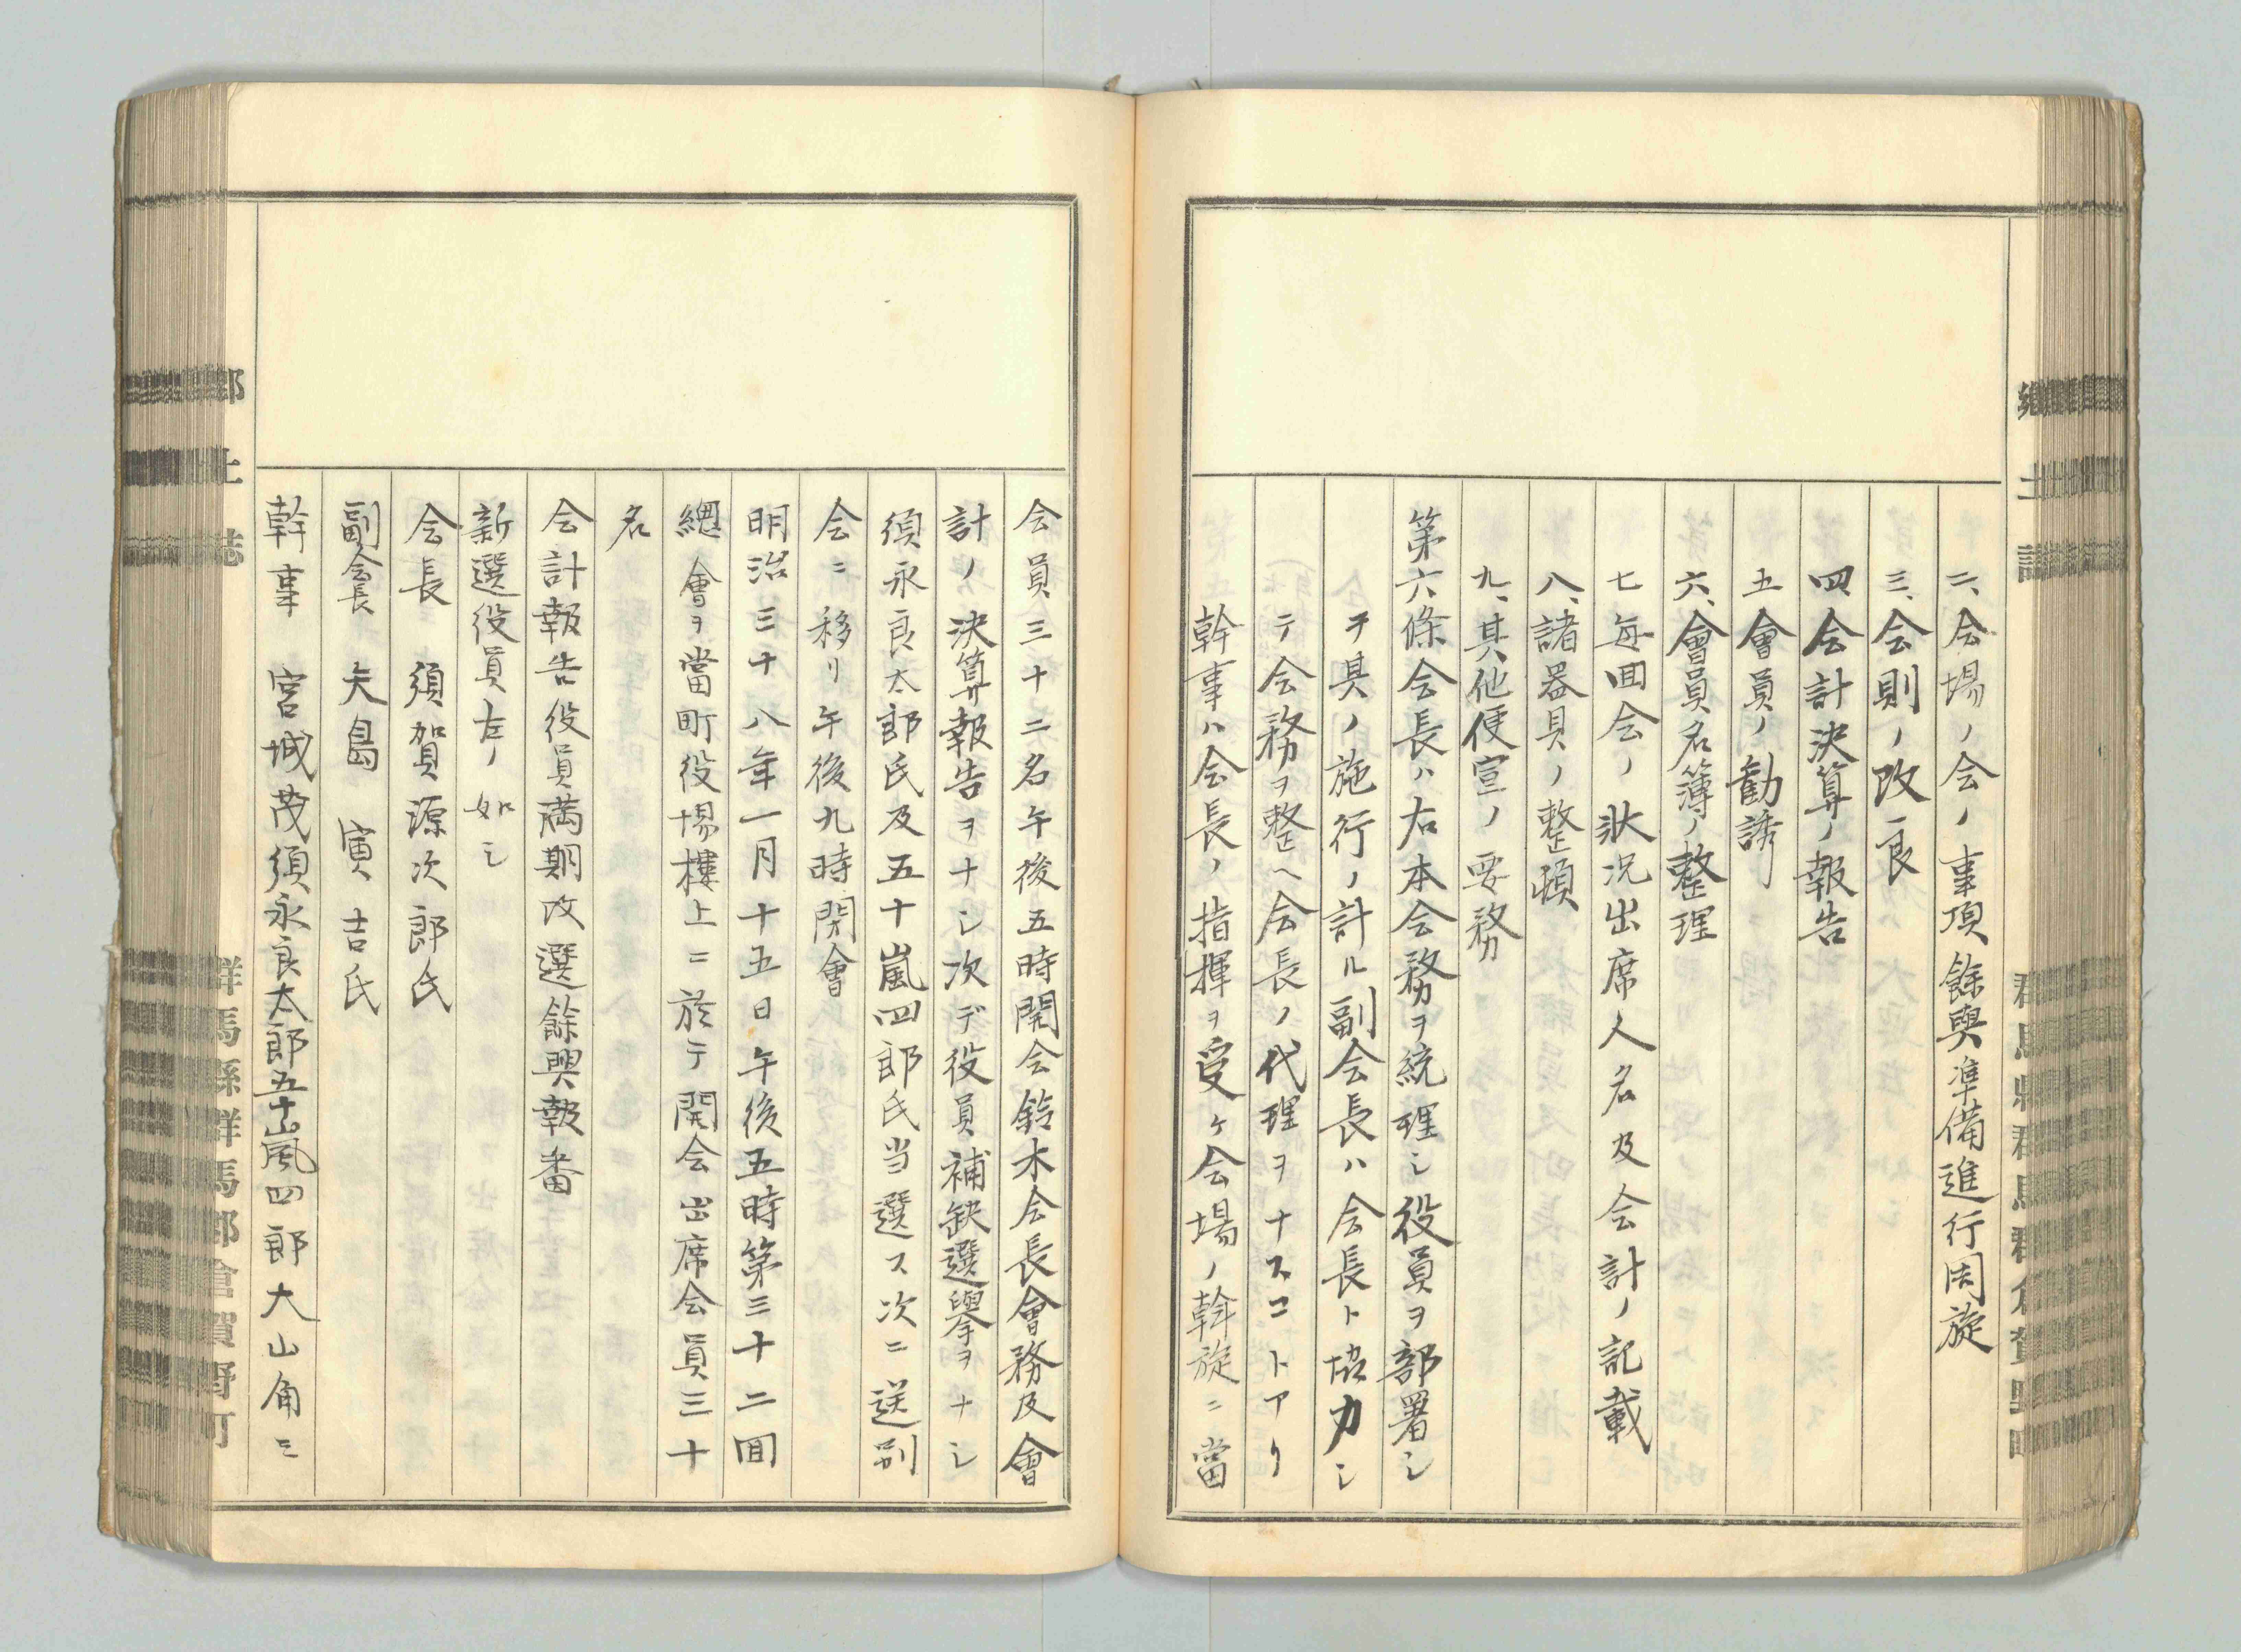 郷土誌
群馬縣群馬郡倉賀野町
二、会場ノ会ノ事項餘興準備進行周旋
三、会則ノ改良
四会計決算ノ報告
五會員ノ勧誘
六、會員名簿ノ整理
七每回会ノ狀況出席人名及会計ノ記載
八、諸器具ノ整頓
九、其他便宣ノ要務
第六條会長ハ右本会務ヲ統理シ役員ヲ部署シ
テ其ノ施行ノ計ル副会長ハ会長ト協力シ
テ会務ヲ整ヘ会長ノ代理ヲナスコトアリ
幹事ハ会長ノ指揮ヲ受ケ会場ノ幹旋ニ當
会員三十二名午後五時開会鈴木会長會務及會
計ノ決算報告ヲナシ次デ役員補缺選擧ヲナシ
須永良太郎氏及五十嵐四郎氏当選ス次ニ送別
会ニ移リ午後九時閉會
明治三十八年一月十五日午後五時第三十二回
總會ヲ當町役場樓上ニ於テ開会出席会員三十
名
会計報告役員満期改選餘興報番
新選役員左ノ如シ
会長 須賀源次郎氏
副会長 矢島寅吉氏
幹事 宮城茂須永良太郎五十嵐四郎大山角三
郷土誌
群馬縣群馬郡倉賀野町